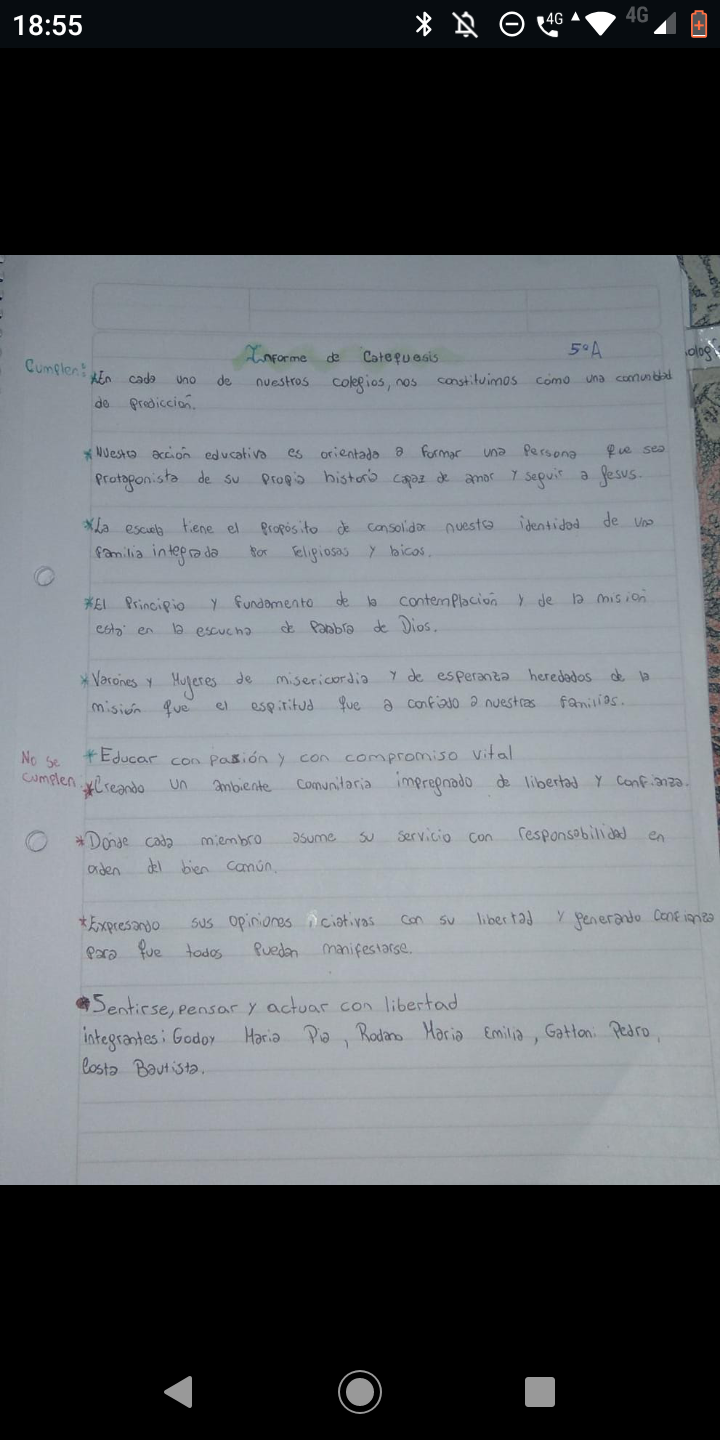 18:55
4G
4G
Informe de Catequesis 5°A
olog
Cumplen:
*En cada uno de nuestros colegios, nos constituimos como una comunidad
de predicción.
*Nuestra acción educativa es orientada a formar una persona que sea
protagonista de su propia historia capaz de amar y seguir a Jesus.
*La escuela tiene el propósito de consolidar nuestra identidad de una
familia integrada por religiosas y laicos.
*El Principio y fundamento de la contemplación y de la misión
está en la escucha de Palabra de Dios.
*Varones y Mujeres de misericordia y de esperanza heredados de la
misión que el espiritud que a confiado a nuestras familias.
*Educar con pasión y con compromiso vital
No se
cumplen
*Creando un ambiente comunitaria impregnado de libertad y confianza.
*Donde cada miembro asume su servicio con responsabilidad en
orden del bien común.
*Expresando sus opiniones iciativas con su libertad y generando confianza
para que todos puedan manifestarse.
*Sentirse, pensar y actuar con libertad
integrantes: Godoy Maria Pia, Rodano Maria Emilia, Gattoni Pedro,
Costa Bautista.